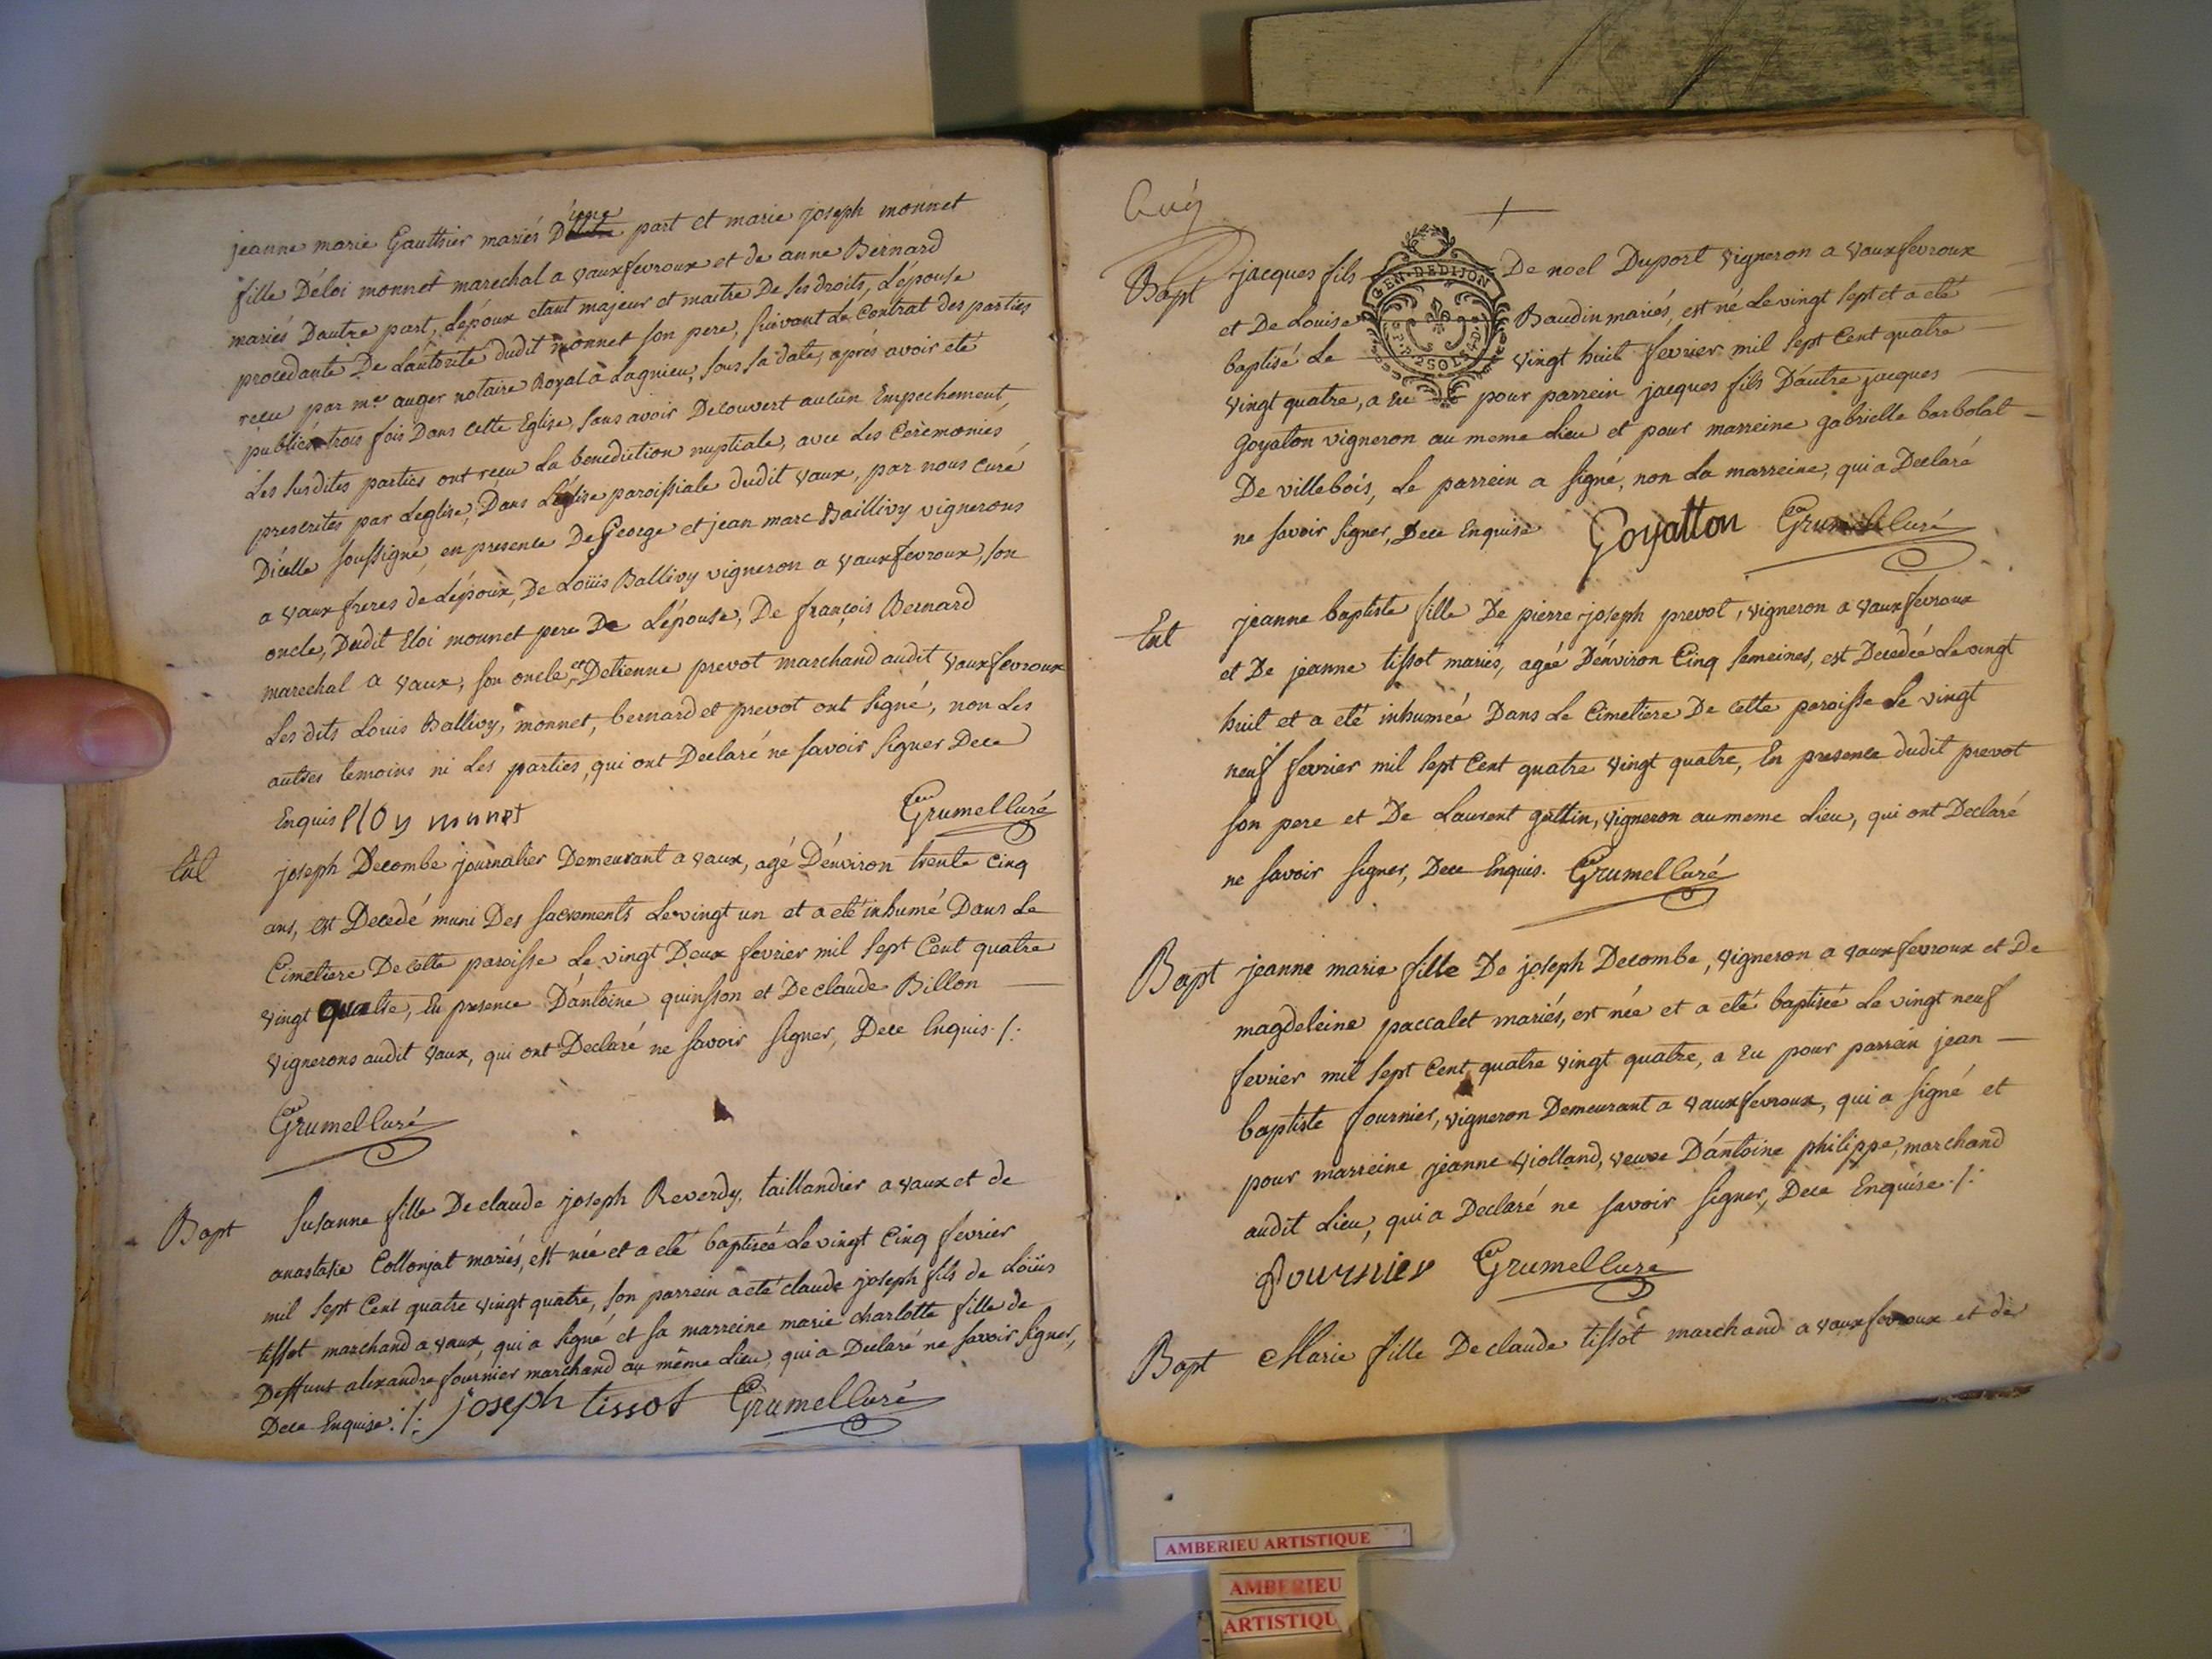 jeanne marie Gauthier mariés D'une part et marie joseph monnet
fille D'éloi monnet marechal a vauxfevroux et de anne Bernard
mariés Dautre part, L'époux etant majeur et maitre De ses droits, L'épouse
procedante De L'autorité dudit monnet son pere, suivant Le Contrat des parties
recu par me auger notaire Royal à Lagnieu, sous sa date, aprés avoir eté
publiés trois fois Dans cette Eglise, sans avoir Decouvert aucun Empechement,
Les susdites parties ont reçu La benediction nuptiale, avec Les Cerémonies
prescrites par Leglise, Dans L'église paroissiale dudit vaux, par nous curé
D'icelle soussigné, en presence De George et jean marc Baillivy vignerons
a vaux freres de L'époux, De Loüis Ballivy vigneron a vauxfevroux, son
oncle, Dudit Eloi monnet pere De L'épouse, De françois Bernard
marechal a vaux, son oncle, et D'etienne prevot marchand audit vauxfevroux
Les dits Louis Ballivy, monnet, bernard et prevot ont signé, non Les
autres temoins ni Les parties, qui ont Declaré ne savoir signer Dece
Enquis Eloy munet Grumel Curé
Ent joseph Decombe journalier Demeurant a vaux, agé D'environ trente cinq
ans, est Decedé muni Des sacrements Le vingt un et a eté inhumé Dans Le
Cimetiere De cette paroisse Le vingt Deux fevrier mil sept Cent quatre
vingt quatre, En presence D'antoine quinsson et De claude Billon
vignerons audit vaux, qui ont Declaré ne savoir signer, Dece Enquis ./.
Grumel Curé
Bapt Susanne fille De claude joseph Reverdy, taillandier a vaux et de
anastasie Collonjat mariés, est née et a eté baptiseé Le vingt Cinq fevrier
mil sept Cent quatre vingt quatre, son parrein a eté claude joseph fils de Loüis
tissot marchand a vaux, qui a signé et sa marreine marie charlotte fille de
Deffunt alexandre fournier marchand au même Lieu, qui a Declaré ne savoir signer,
Dece Enquise ./. joseph tissot Grumel Curé
Bapt jacques fils De noel Duport vigneron a vauxfevroux
GEN. DE DIJON
et De Louise Baudin mariés, est né Le vingt sept et a eté
baptisé Le vingt huit fevrier mil sept Cent quatre
vingt quatre, a Eu pour parrein jacques fils D'autre jacques
Goyaton vigneron au meme Lieu et pour marreine gabrielle barbolat
De villebois, Le parrein a signé, non La marreine, qui a Declaré
ne savoir signer, Dece Enquise Goyatton Grumel Curé
Ent jeanne baptiste fille De pierre joseph prevot, vigneron a vauxfevroux
et De jeanne tissot mariés, ageé D'environ Cinq semeines, est Decedeé Le vingt
huit et a eté inhumeé Dans Le Cimetiere De cette paroisse Le vingt
neuf fevrier mil sept Cent quatre vingt quatre, En presence dudit prevot
son pere et De Laurent guttin, vigneron au meme Lieu, qui ont Declaré
ne savoir signer, Dece Enquis. Grumel Curé
Bapt jeanne marie fille De joseph Decombe, vigneron a vauxfevroux et De
magdeleine paccalet mariés, est née et a eté baptiseé Le vingt neuf
fevrier mil sept Cent quatre vingt quatre, a Eu pour parrein jean
baptiste fournier, vigneron Demeurant a vauxfevroux, qui a signé et
pour marreine jeanne violland, veuve D'antoine philippe, marchand
audit Lieu, qui a Declaré ne savoir signer, Dece Enquise ./.
Fournier Grumel Curé
Bapt Marie fille De claude tissot marchand a vauxfevroux et de
AMBERIEU ARTISTIQUE
AMBERIEU
ARTISTIQU